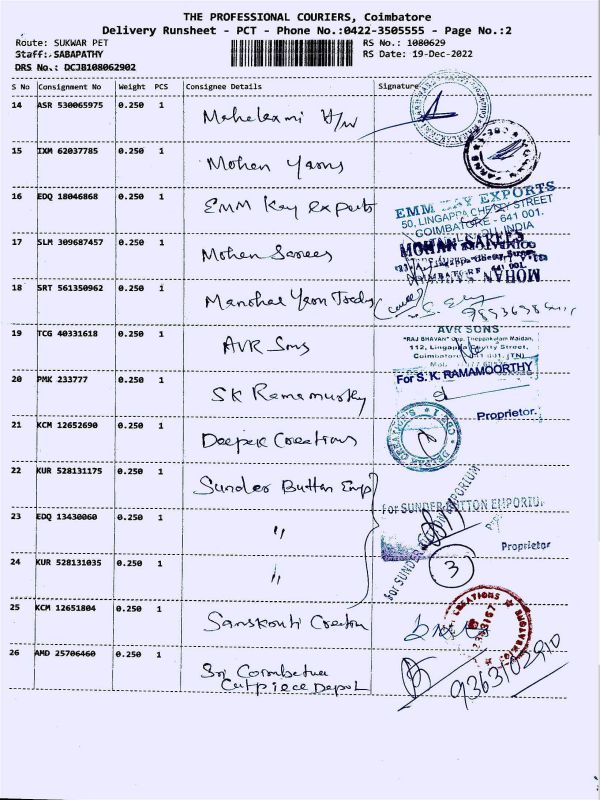 THE PROFESSIONAL COURIERS, Coimbatore
Delivery Runsheet - PCT - Phone No.:0422-3505555 - Page No.:2
Route: SUKWAR PET
RS No.: 1080629
Staff: SABAPATHY
RS Date: 19-Dec-2022
DRS No.: DCJB108062902
S No Consignment No Weight PCS Consignee Details Signature
14 ASR 530065975 0.250 1 Mahalaxmi H/w
15 IXM 62037785 0.250 1 Mohan Yarns
16 EDQ 18046868 0.250 1 EMM Kay Exports
EMM KAY EXPORTS
50, LINGAPPA CHETTY STREET
COIMBATORE - 641 001.
INDIA
17 SLM 309687457 0.250 1 Mohan Sarees
MOHAN SAREES
18 SRT 561350962 0.250 1 Manohar Yarn Traders
19 TCG 40331618 0.250 1 AVR Sons
AVR SONS
"RAJ BHAVAN" Opp. Theppakulam Maidan,
112, Lingappa Chetty Street,
Coimbatore 641 001. (TN)
20 PMK 233777 0.250 1 SK Ramamurthy
For S. K. RAMAMOORTHY
Proprietor.
21 KCM 12652690 0.250 1 Deepak Creations
22 KUR 528131175 0.250 1 Sunder Button Emp
For SUNDER BUTTON EMPORIUM
For SUNDER BUTTON EMPORIUM
23 EDQ 13430060 0.250 1 "
Proprietor
24 KUR 528131035 0.250 1 "
3
25 KCM 12651804 0.250 1 Sanskruti Creation
CREATIONS
26 AMD 25706460 0.250 1 Sri Coimbatore
Cutpiece Depot
9363102910